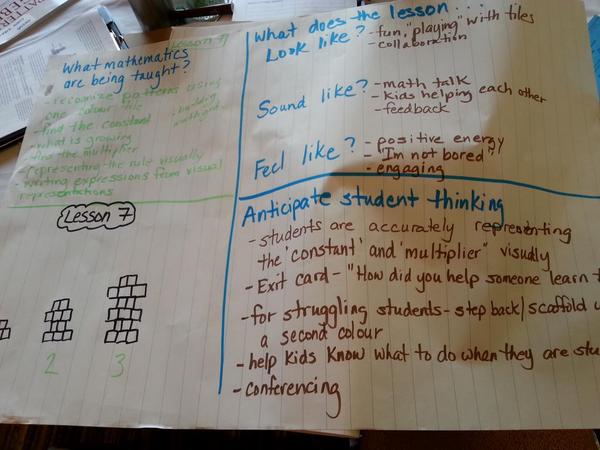 Lesson 7
What mathematics
are being taught?
- recognize patterns using
one colour tile
- find the constant
- what is growing
- find the multiplier
- representing the rule visually
- writing expressions from visual
representations
What does the lesson...
Look like? - fun, "playing" with tiles
- collaboration
Sound like? - math talk
- kids helping each other
- feedback
Feel like? - positive energy
- "I'm not bored"
- engaging
Lesson 7
2 3
Anticipate student thinking
- students are accurately representing
the 'constant' and 'multiplier" visually
- Exit card - "How did you help someone learn
- for struggling students - step back/scaffold
a second colour
- help kids know what to do when they are
- conferencing